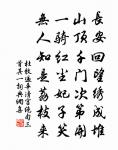 長安回望繡成堆
山頂千門次第開
一騎紅塵妃子笑
無人知是荔枝來
杜牧過華清宮絕句三
首其一